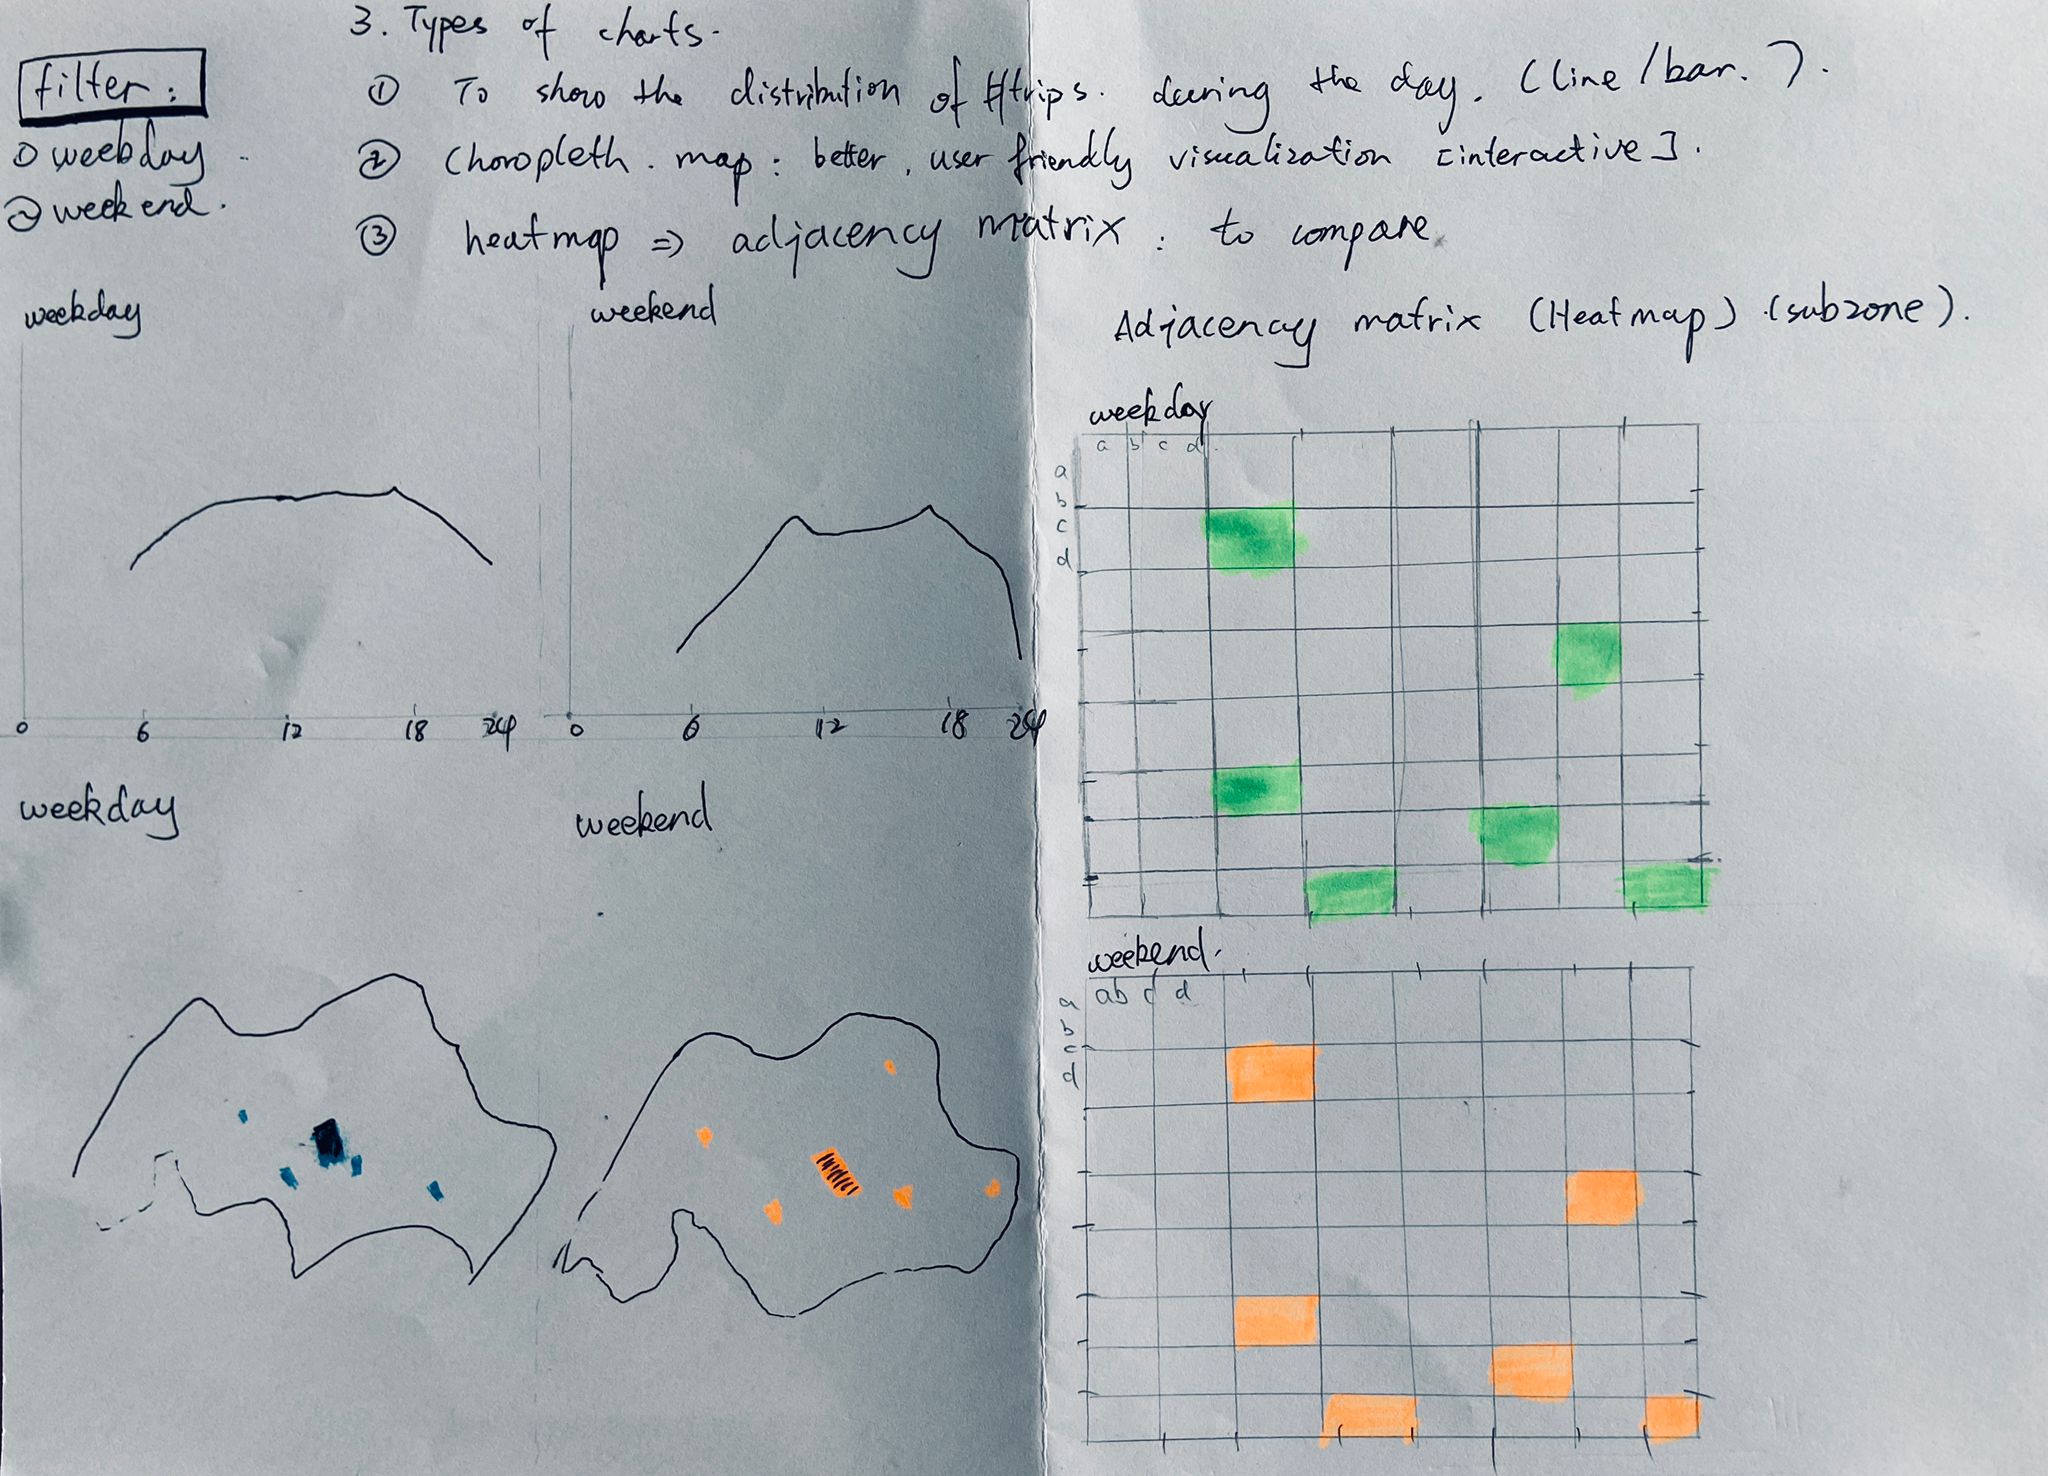 3. Types of charts.
filter:
① weekday
② weekend.
① To show the distribution of #trips. during the day. (line/bar.).
② Choropleth. map: better, user friendly visualization [interactive].
③ heatmap => adjacency matrix: to compare.
weekday
weekend
0 6 12 18 24
0 6 12 18 24
weekday
weekend
Adjacency matrix (Heatmap) (subzone).
weekday
a b c d
a
b
c
d
weekend.
a b c d
a
b
c
d